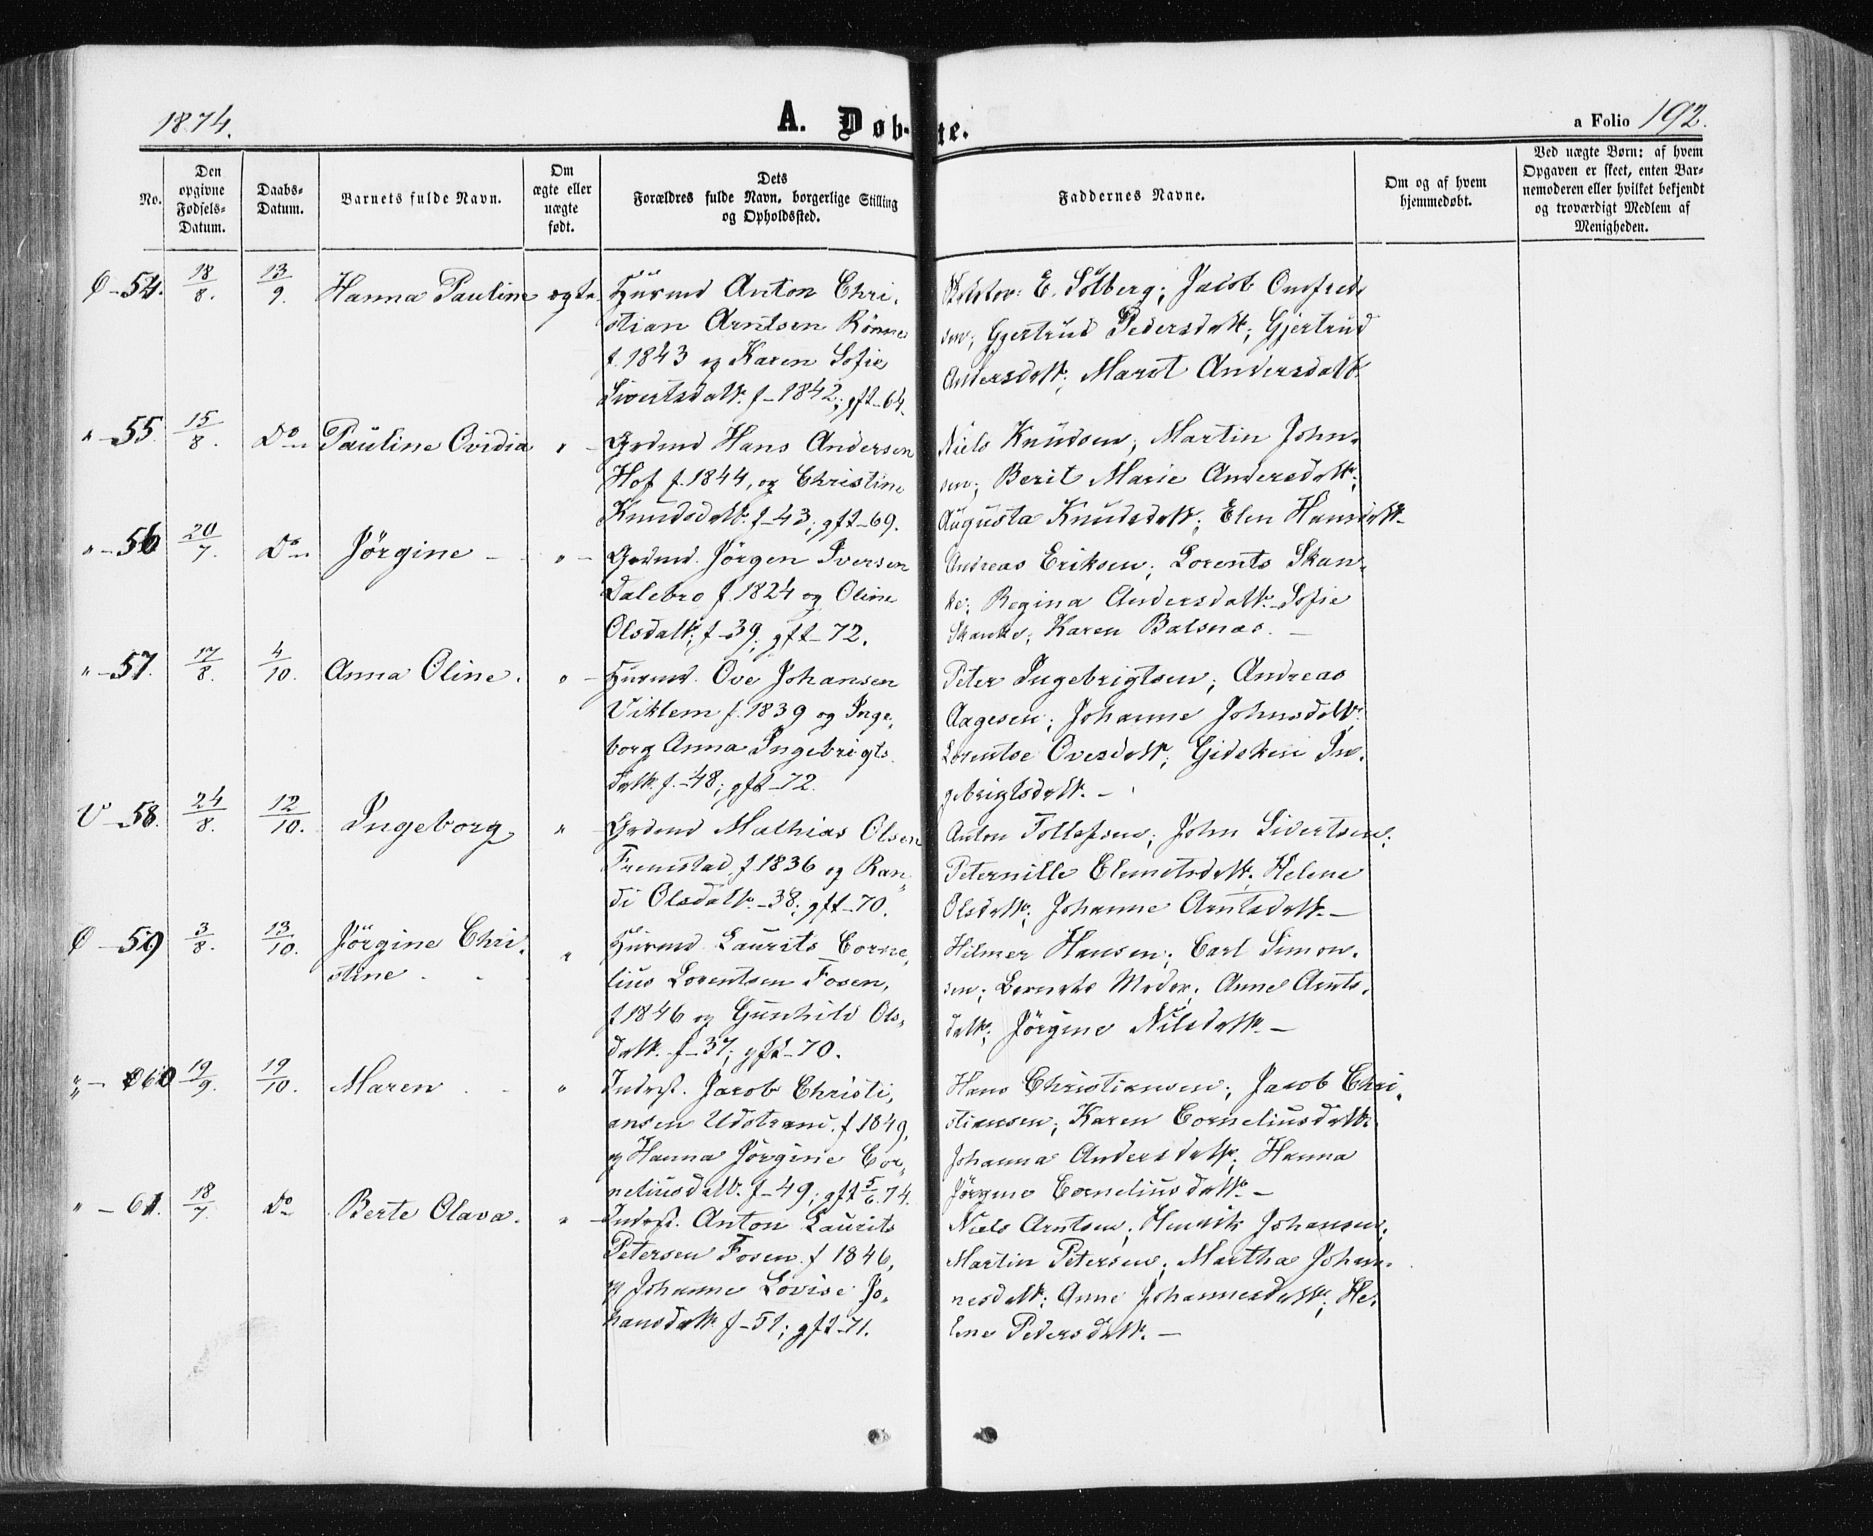 1874.
A. Døb-te.
a Folio 192.
No.
Den opgivne Fødsels-Datum.
Daabs-Datum.
Barnets fulde Navn.
Om ægte eller uægte født.
Dets Forældres fulde Navn, borgerlige Stilling og Opholdssted.
Faddernes Navne.
Om og af hvem hjemmedøbt.
Ved uægte Børn: af hvem Opgaven er skeet, enten Barnemoderen eller hvilket bekjendt og troværdigt Medlem af Menigheden.
O - 54. 18/8. 13/9. Hanna Pauline ægte. Husmd Anton Chri-
stian Arntsen Rønne
f. 1843 og Karen Sofie
Sivertsdatt. f - 1842; gft - 64.
E. Solberg; Jacob Omfreds
sen; Gjertrud Pedersdatt; Gjertrud
Andersdatt; Marit Andersdatt
" - 55. 15/8. Do Pauline Ovidia " Grdmd Hans Andersen
Hof f. 1844, og Christine
Knudsdatt. f - 43; gft - 69.
Niels Knudsen; Martin John-
sen; Berit Marie Andersdatt;
Augusta Knudsdatt; Elen Hansdatt -
" - 56 20/7. Do Jørgine - " Grdmd. Jørgen Iversen
Dalebro f. 1824 og Oline
Olsdatt; f - 39; gft - 72.
Andreas Eriksen; Lorents Skan-
ke; Regina Andersdatt. Sofie
Skanke; Karen Balsnæs. -
" - 57. 17/8. 4/10. Anna Oline. " Husmd. Ove Johansen
Viklem f. 1839 og Inge-
borg Anna Ingebrigts
Datt. f. - 48; gft - 72.
Peter Ingebrigtsen; Andreas
Aagesen; Johanne Johnsdatt.
Lorentse Ovesdatt; Gidsken In-
gebrigtsdatt. -
V - 58. 24/8. 12/10. Ingeborg " Grdmd Mathias Olsen
Fremstad, f 1836 og Ran-
di Olsdatt. - 38; gft - 70.
Anton Tollefsen; John Sivertsen;
Peternille Elmetsdatt. Helene
Olsdatt; Johanne Arntsdatt. -
O - 59 3/8. 13/10. Jørgine Chri-
stine " Husmd. Laurits Corne-
lius Lorentsen Fosen,
f 1846 og Gunhild Ols-
datt. f - 37; gft - 70.
Hilmer Hansen; Carl Simon-
sen; Barnets Moder; Anne Arnts-
datt; Jørgine Nilsdatt. -
" - 60 19/9. 19/10. Maren " Inderst. Jacob Christi-
ansen Udstrand. f 1849,
og Hanna Jørgine Cor-
neliusdatt. f - 49; gft 5/6. 74.
Hans Christiansen; Jacob Chri-
stiansen; Karen Corneliusdatt.
Johanna Andersdatt; Hanna
Jørgine Corneliusdatt. -
" - 61. 18/7. Do Berte Olava. " Inderst. Anton Laurits
Petersen Fosen. f 1846,
og Johanne Lovise Jo-
hansdatt f - 51; gft - 71.
Niels Arntsen; Henrik Johansen;
Martin Petersen; Martha Johan-
nesdatt; Anne Johannesdatt; He-
lene Pedersdatt. -